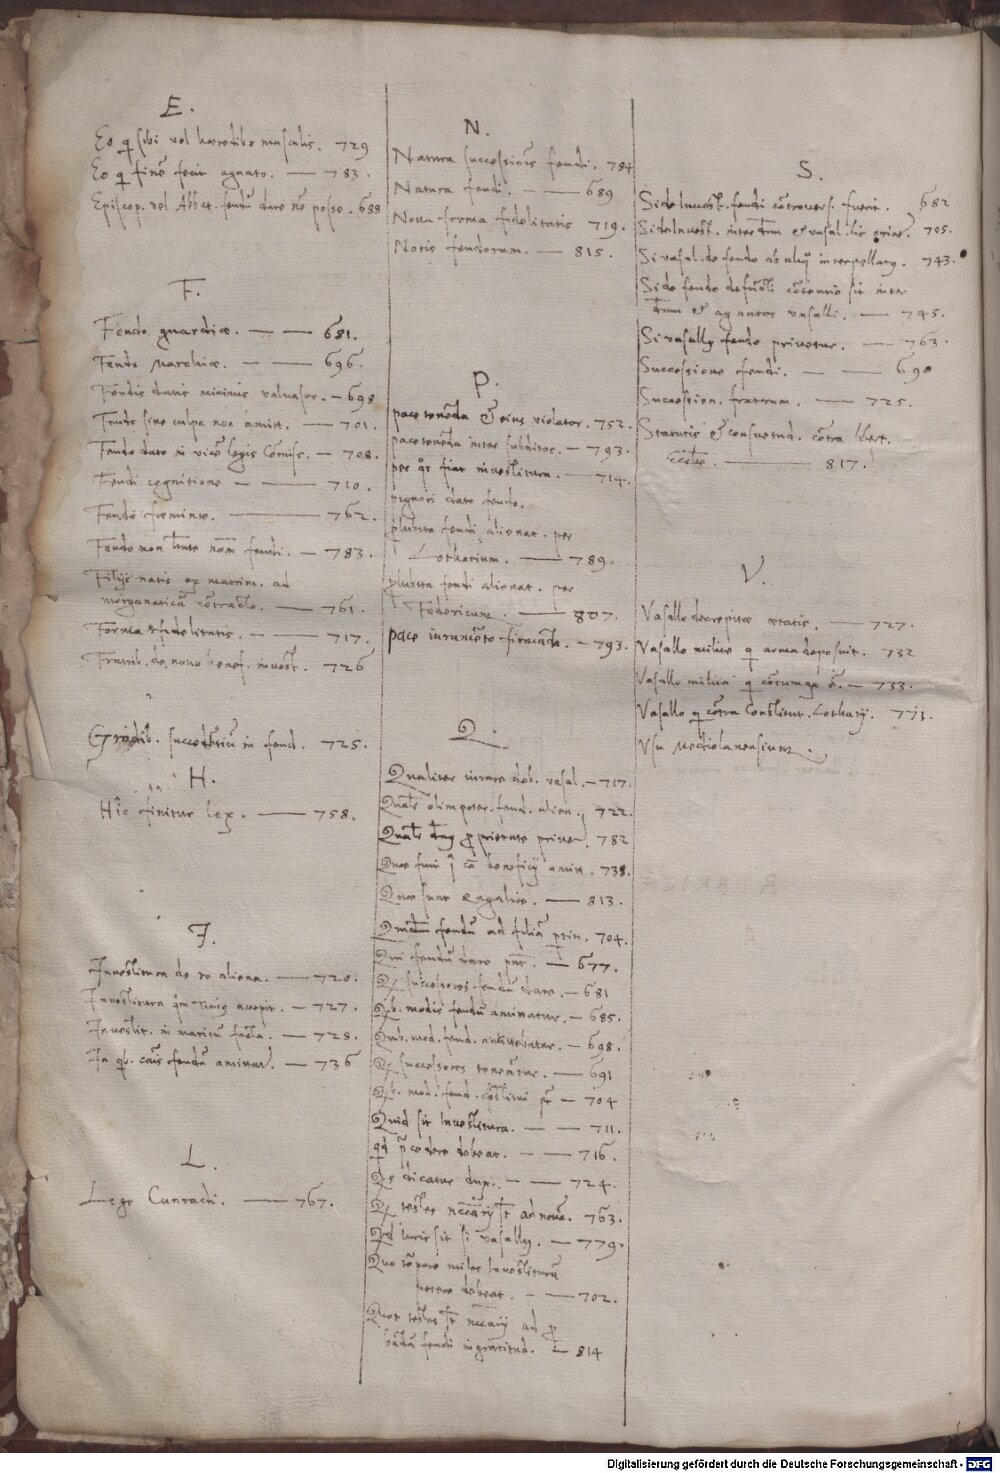 E.
Eo q sibi vel heredibs masculis. 729
Eo q finē fecit agnato. — 783.
Episcop. vel Abbat. feudū dare nō posse. 688
F.
Feudo guardiæ. — — 681.
Feudo Marchiæ. — — 696.
Feudis datis minimis valvasor. — 698
Feudo sine culpa non amitt. — 701.
Feudo dato in vicē legis Comiss. — 708.
Feudi cognitione — — 710.
Feudo fœmineo. — 762.
Feudo non hnte nām feudi. — 783.
Filijs natis ex matrim. ad
morganaticā contracto. — 761.
Forma fidelitatis. — — 717.
Fratrib. de novo benef. invest. 726
Gradib. succedētiū in feud. 725.
H.
Hic finitur lex. — 758.
I.
Investitura de re aliena. — 720.
Investitura qm Titius accepit. — 727.
Investit. in maritū facta. — 728.
In qb. caus feudū amittat. — 736
L.
Lege Cunradi. — 767.
N.
Natura successionis feudi. 784
Natura feudi. — — 689
Nova forma fidelitatis 719.
Notis feudorum. — 815.
P.
pace tenēda & eius violator. 752.
pace tenēda inter subditos. — 793.
per qs fiat investitura. — 714.
pignori dato feudo.
phibita feudi alienat. per
Lotharium. — 789.
phibita feudi alienat. per
Federicum. — 807.
pace iuramēto firmāda. — 793.
Q.
Qualiter iurare deb. vasal. — 717.
Qualr olim poter. feud. alien. 722.
Qualr dns pprietate privet. 782
Quæ fuit i cā beneficij amitt. 738.
Quæ sunt Regaliæ. — 813.
feudū ad filiā ptin. 704.
Qui feudū dare pnt. — 677.
Q successores feudū dare. — 681
Qb. modis feudū amittatur. — 685.
Quib. mod. feud. — 698.
Q successores teneātur. — 691
Qb. mod. feud. cōstitui pt — 704
Quid sit Investitura. — — 711.
qd pcedere debeat. — — 716.
dicatur dux. — — 724.
Q testes nccarij st ad novā. 763.
Qd iuris sit si vasallus. — 779.
Quo tēpore miles Investiturā
petere debeat. — — 702.
Quot testes st nccaij ad p
bādā feudi ingratitud. — 814
S.
Si de Invest. feudi cōtrovers. fuerit. 682
Si de Invest. inter dnm & vasal. lis oriat. 705.
Si vasal. de feudo ab aliq interpelletur. 743.
Si de feudo defuncti cōtentio sit inter
dnm & agnatos vasalli. — 745.
Si vasallus feudo privetur. — 763.
Successione feudi. — — 690
Succession. fratrum. — 725.
Statutis & consuetud. cōtra libert.
Eccles. — 817.
V.
Vasallo decrepitæ ætatis. — 727.
Vasallo milite q arma deposuit. 732
Vasallo milite q cōtumax ē. — 733.
Vasallo q cōtra Constitut. Lotharij. 771.
Vsu Mediolanensium.
Digitalisierung gefördert durch die Deutsche Forschungsgemeinschaft - DFG